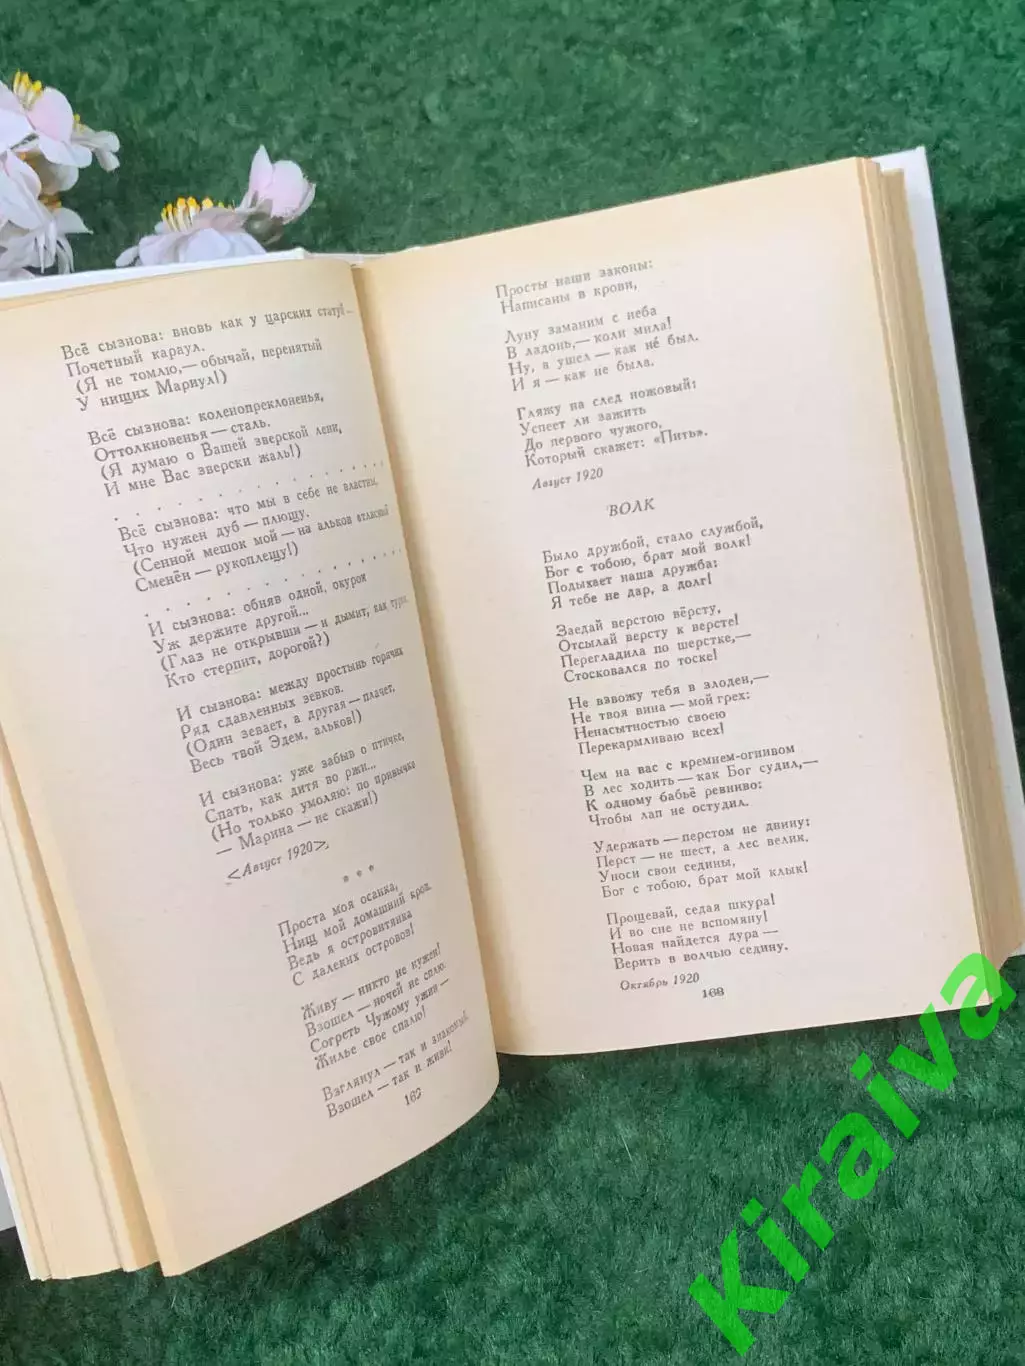 Всё сызнова: вновь как у царских стату!—
Почетный караул.
(Я не томлю,— обычай, перенятый
У нищих Мариул!)
Всё сызнова: коленопреклоненья,
Оттолкновенья — сталь.
(Я думаю о Вашей зверской лени,
И мне Вас зверски жаль!)
. . . . . . . . . . . . . . . .
Всё сызнова: что мы в себе не властны,
Что нужен дуб — плющу.
(Сенной мешок мой — на альков атласный
Сменён — рукоплещу!)
. . . . . . . . . . . . . . . .
И сызнова: обняв одной, окурок
Уж держите другой...
(Глаз не открывши — и дымит, как турок
Кто стерпит, дорогой?)
И сызнова: между простынь горячих
Ряд сдавленных зевков.
(Один зевает, а другая — плачет.
Весь твой Эдем, альков!)
И сызнова: уже забыв о птичке,
Спать, как дитя во ржи...
(Но только умоляю: по привычке
— Марина — не скажи!)
<Август 1920>
* * *
Проста моя осанка,
Нищ мой домашний кров.
Ведь я островитянка
С далеких островов!
Живу — никто не нужен!
Взошел — ночей не сплю.
Согреть Чужому ужин —
Жилье свое спалю!
Взглянул — так и знакомый,
Взошел — так и живи!
162
Просты наши законы:
Написаны в крови,
Луну заманим с неба
В ладонь,— коли мила!
Ну, а ушел — как не́ был.
И я — как не была.
Гляжу на след ножовый:
Успеет ли зажить
До первого чужого,
Который скажет: «Пить».
Август 1920
ВОЛК
Было дружбой, стало службой,
Бог с тобою, брат мой волк!
Подыхает наша дружба:
Я тебе не дар, а долг!
Заедай верстою вёрсту,
Отсылай версту к версте!
Перегладила по шерстке,—
Стосковался по тоске!
Не взвожу тебя в злодеи,—
Не твоя вина — мой грех:
Ненасытностью своею
Перекармливаю всех!
Чем на вас с кремнием-огнивом
В лес ходить — как Бог судил,—
К одному бабьё ревниво:
Чтобы лап не остудил.
Удержать — перстом не двину:
Перст — не шест, а лес велик.
Уноси свои седины,
Бог с тобою, брат мой клык!
Прощевай, седая шкура!
И во сне не вспомяну!
Новая найдется дура —
Верить в волчью седину.
Октябрь 1920
163
Kiraiva